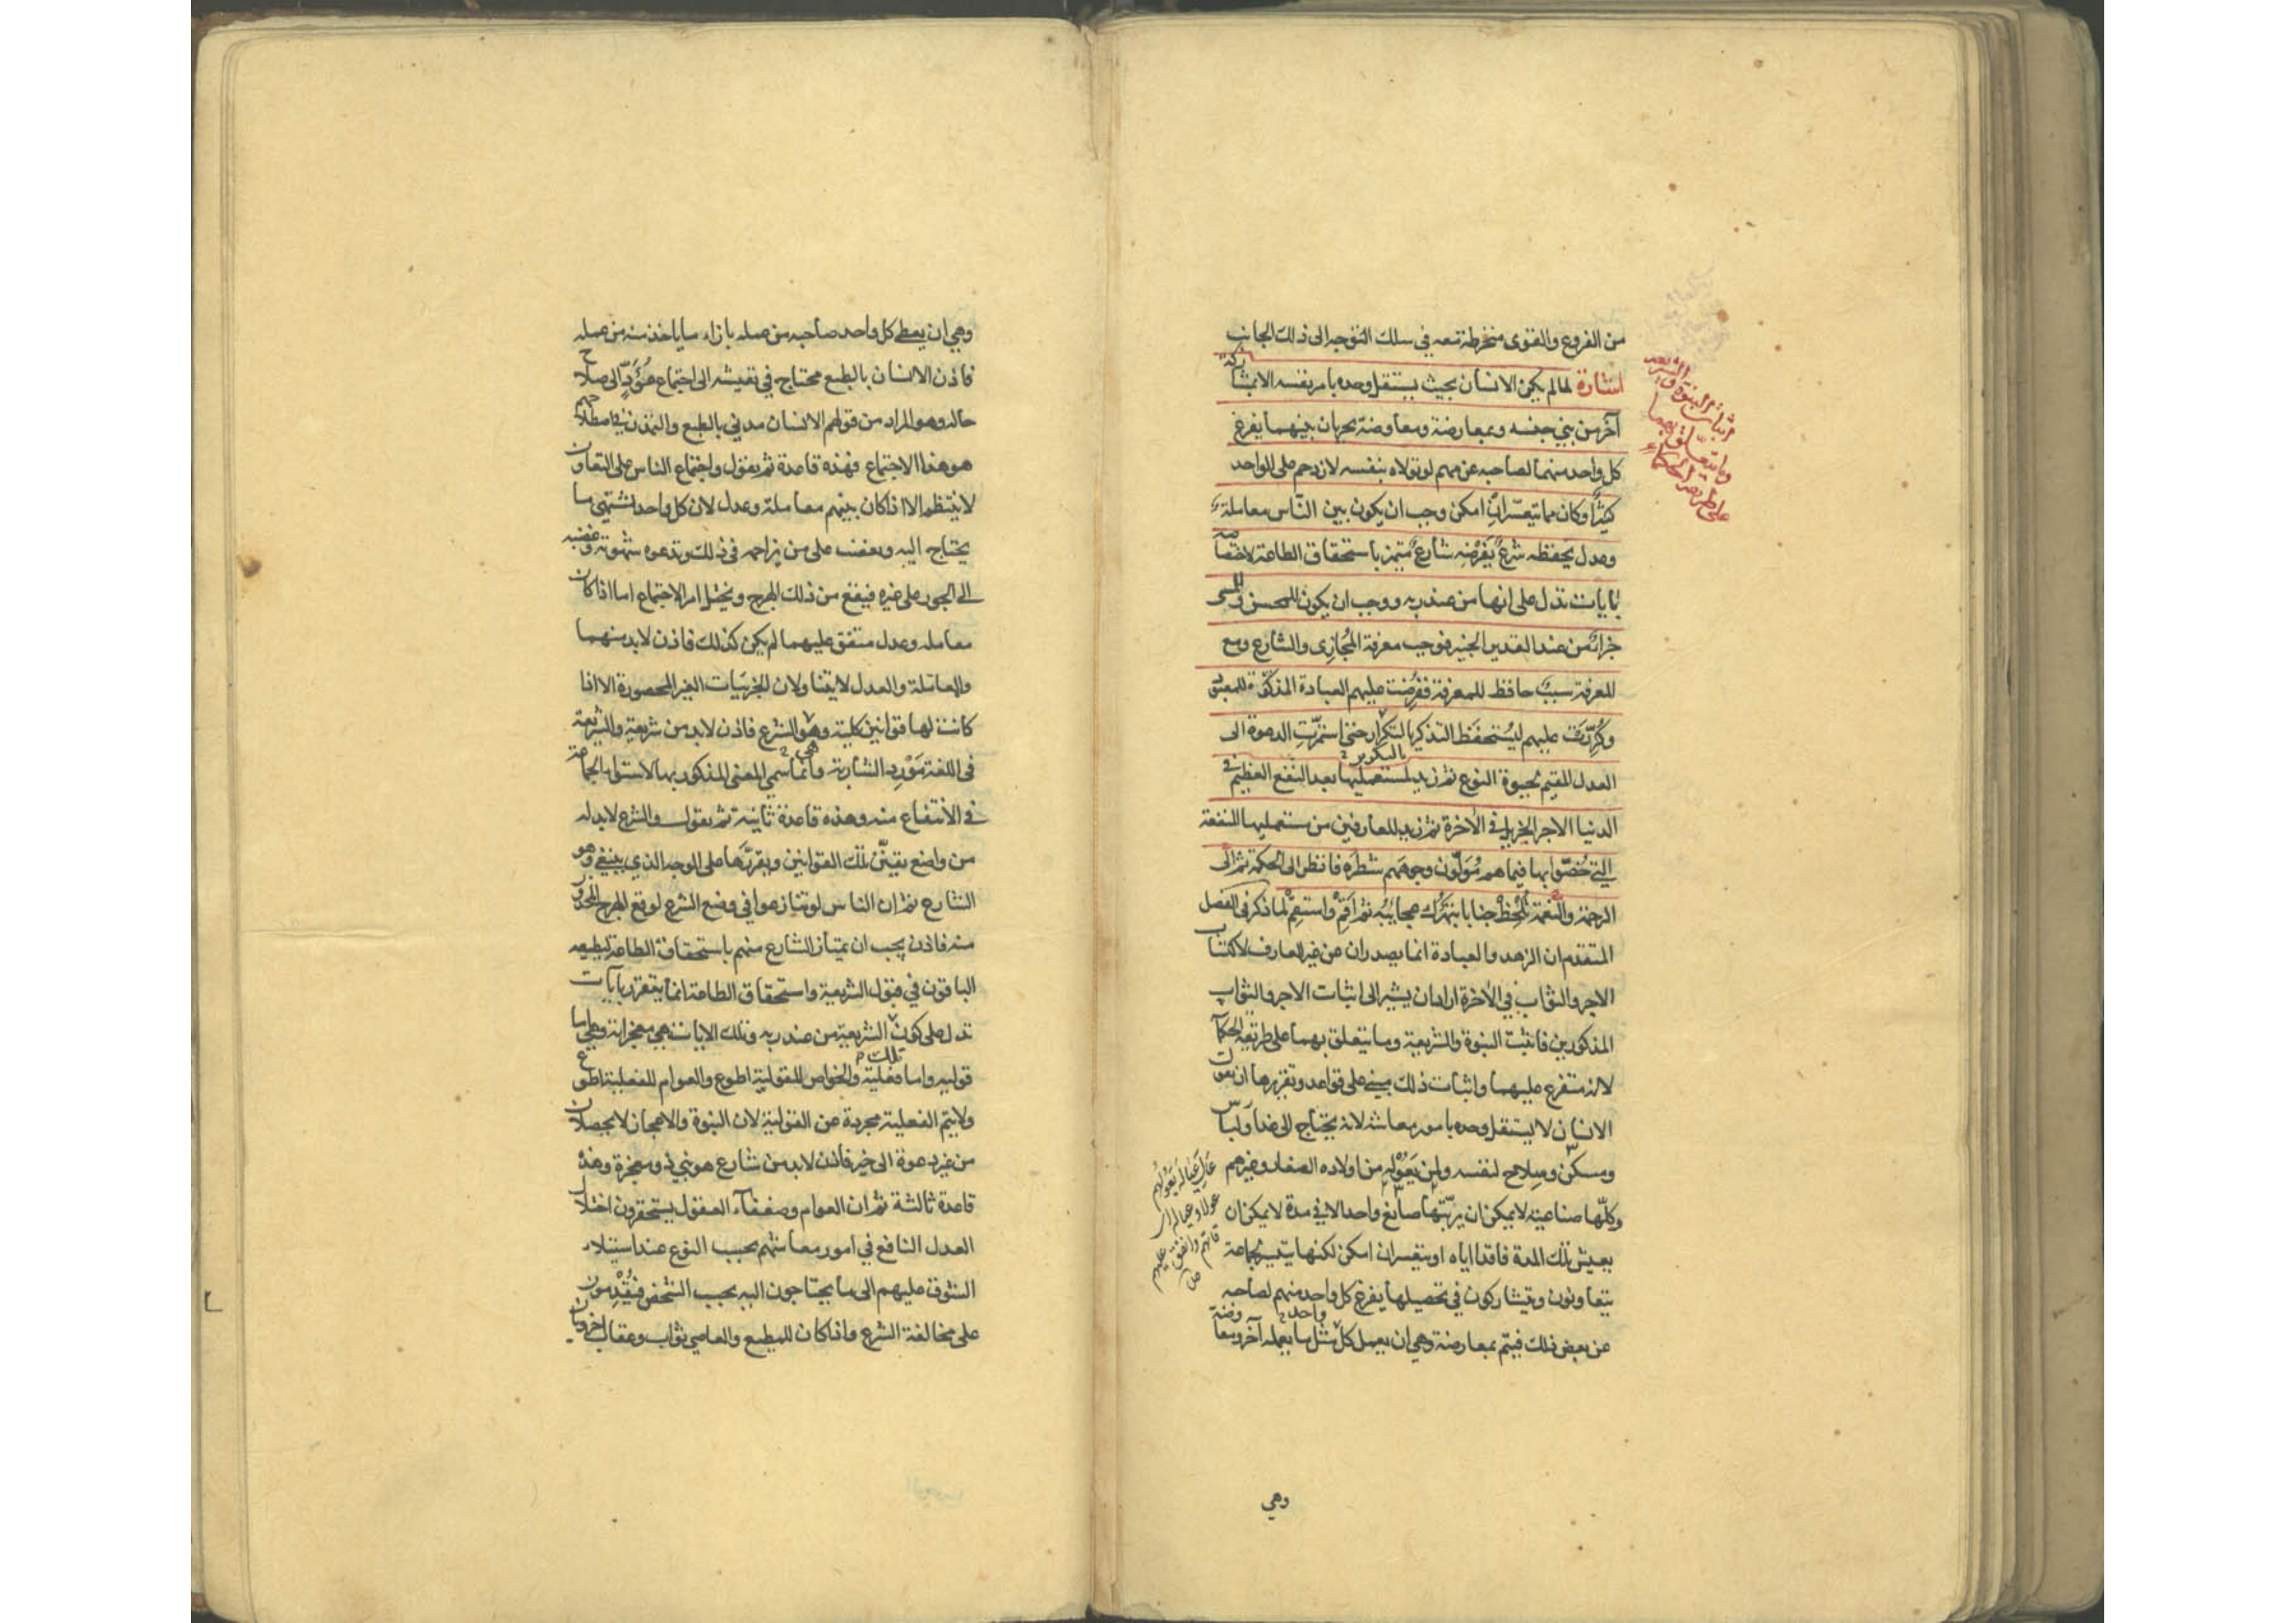 من الفروع والقوى منخرطة معه في سلك التوجه الى ذلك الجانب
اشارة لما لم يكن الانسان بحيث يستقل وحده بامر نفسه الا بمشاركة
آخر من بني جنسه وبمعارضة ومعاوضة يجريان بينهما يفرغ
كل واحد منهما لصاحبه عن مهم لو تولاه بنفسه لازدحم على الواحد
كثير وكان مما يتعسّر ان امكن وجب ان يكون بين الناس معاملة
وعدل يحفظه شرع يفرضه شارع متميز باستحقاق الطاعة لاختصاصه
بايات تدل على انها من عند ربه ووجب ان يكون للمحسن وللمسي
جزاء من عند القدير الخبير فوجب معرفة المجازى والشارع ومع
المعرفة سبب حافظ للمعرفة ففرضت عليهم العبادة المذكرة للمعبود
وكررت عليهم ليستحفظ التذكير بالتكرار حتى استمرت الدعوة الى
بالتكرير
العدل المقيم لحيوة النوع ثم زيد لمستعمليها بعد النفع العظيم في
الدنيا الاجر الجزيل في الاخرة ثم زيد للعارفين من مستعمليها المنفعة
التي خُصّوا بها فيما هم مُوَلّون وجوههم شطره فانظر الى الحكمة ثم الى
الرحمة والنعمة تلحظ جنابا تبهرك عجايبه ثم اقم واستقم لما ذكر في الفصل
المتقدم ان الزهد والعبادة انما يصدران عن غير العارف لاكتساب
الاجر والثواب في الاخرة اراد ان يشير الى اثبات الاجر والثواب
المذكورين فاثبت النبوة والشريعة وما يتعلق بهما على طريقه الحكمآ
لانه متفرع عليهما واثبات ذلك مبني على قواعد وتقريرها ان نقول
الانسان لا يستقل وحده بامور معاشه لانه يحتاج الى غذآ ولباس
ومسكن وسلاح لنفسه ولمن يَعُوْله من اولاده الصغار وغيرهم
وكلّها صناعية لا يمكن ان يرتّبها صانع واحد الا في مدة لا يمكن ان
يعيش تلك المدة فاقدا اياه او يتعسر ان امكن لكنها تتيسر لجماعة
يتعاونون ويتشاركون في تحصيلها يفرغ كل واحد منهم لصاحبه
عن بعض ذلك فيتم بمعارضة وهي ان يعمل كل واحد مثل ما يعمله آخر ومعاوضة
وهي
اثبات النبوة والشريعة
وما يتعلق بهما
على طريقه الحكماء
عال عياله يعولهم
عولا وعياله اي
قاتهم وانفق عليهم
ص
وهي ان يعطي كل واحد صاحبه من عمله بازاء ما ياخذ منه من عمله
فاذن الانسان بالطبع محتاج في تعيشه الى اجتماع مُؤَدٍّ الى صلاح
حاله وهو المراد من قولهم الانسان مدني بالطبع والتمدن في اصطلاحهم
هو هذا الاجتماع فهذه قاعدة ثم يقول واجتماع الناس على التعاون
لا ينتظم الا اذا كان بينهم معاملة وعدل لان كل واحد يشتهي ما
يحتاج اليه ويغضب على من يزاحمه في ذلك وتدعوه شهوته وغضبه
الى الجور على غيره فيقع من ذلك الهرج ويختل امر الاجتماع اما اذا كان
معامله وعدل متفق عليهما لم يكن كذلك فاذن لا بد منهما
والمعاملة والعدل لا يتناولان الجزئيات الغير المحصورة الا اذا
كانت لها قوانين كلية وهو الشرع فاذن لا بد من شريعة والشريعة
هي
في اللغة مَوْرد الشاربة وانما سمي المعنى المذكور بها لاستواء الجماعة
في الانتفاع منه وهذه قاعدة ثانية ثم يقول والشرع لا بد له
من واضع يقنّن تلك القوانين ويقررها على الوجه الذي ينبغي وهو
الشارع ثم ان الناس لو تنازعوا في وضع الشرع لوقع الهرج المحذور
منه فاذن يجب ان يمتاز الشارع منهم باستحقاق الطاعة ليطيعه
الباقون في قبول الشريعة واستحقاق الطاعة انما يتقرر بآيات
تدل على كون تلك الشريعة من عند ربه وتلك الايات هي معجزاته وهي اما
قوليه واما فعلية والخواص للقولية اطوع والعوام للفعلية اطوع
ولا يتم الفعلية مجردة عن القولية لان النبوة والاعجاز لا يحصلان
من غير دعوة الى خير فاذن لا بد من شارع هو نبي ذو معجزة وهذه
قاعدة ثالثة ثم ان العوام وضعفآء العقول يستحقرون اختلال
العدل النافع في امور معاشهم بحسب النوع عند استيلاء
الشوق عليهم الى ما يحتاجون اليه بحسب الشخص فيُقْدِمون
على مخالفة الشرع واذا كان للمطيع والعاصي ثواب وعقاب اخرويان